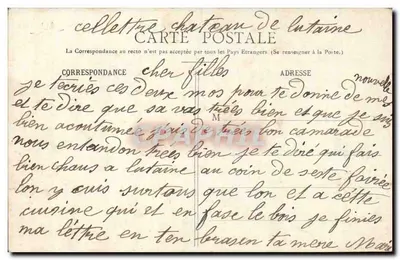 cellettre chateau de lutaine
CARTE POSTALE
La Correspondance au recto n'est pas acceptée par tous les Pays Etrangers. (Se renseigner à la Poste.)
CORRESPONDANCE
ADRESSE
cher filles
nouvelle
je técriés ces deux mos pour te donne de mes
et te dire que sa vas trées bien et que je suis
bien acoutumé jai de trés bon camarade
nous entendon trées bien je te diré qui fais
bien chaus a lutaine au coin de seste
lon y cuis surtous que lon et a cette
cuisine qui et en fase le bois je finies
ma léttre en ten brasan ta mere